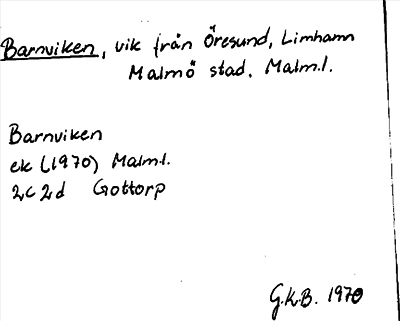 Barnviken, vik från Öresund, Limhamn
Malmö stad, Malm.l.
Barnviken
ek (1970) Malm.l.
2C2d Gottorp
G.K.B. 1970